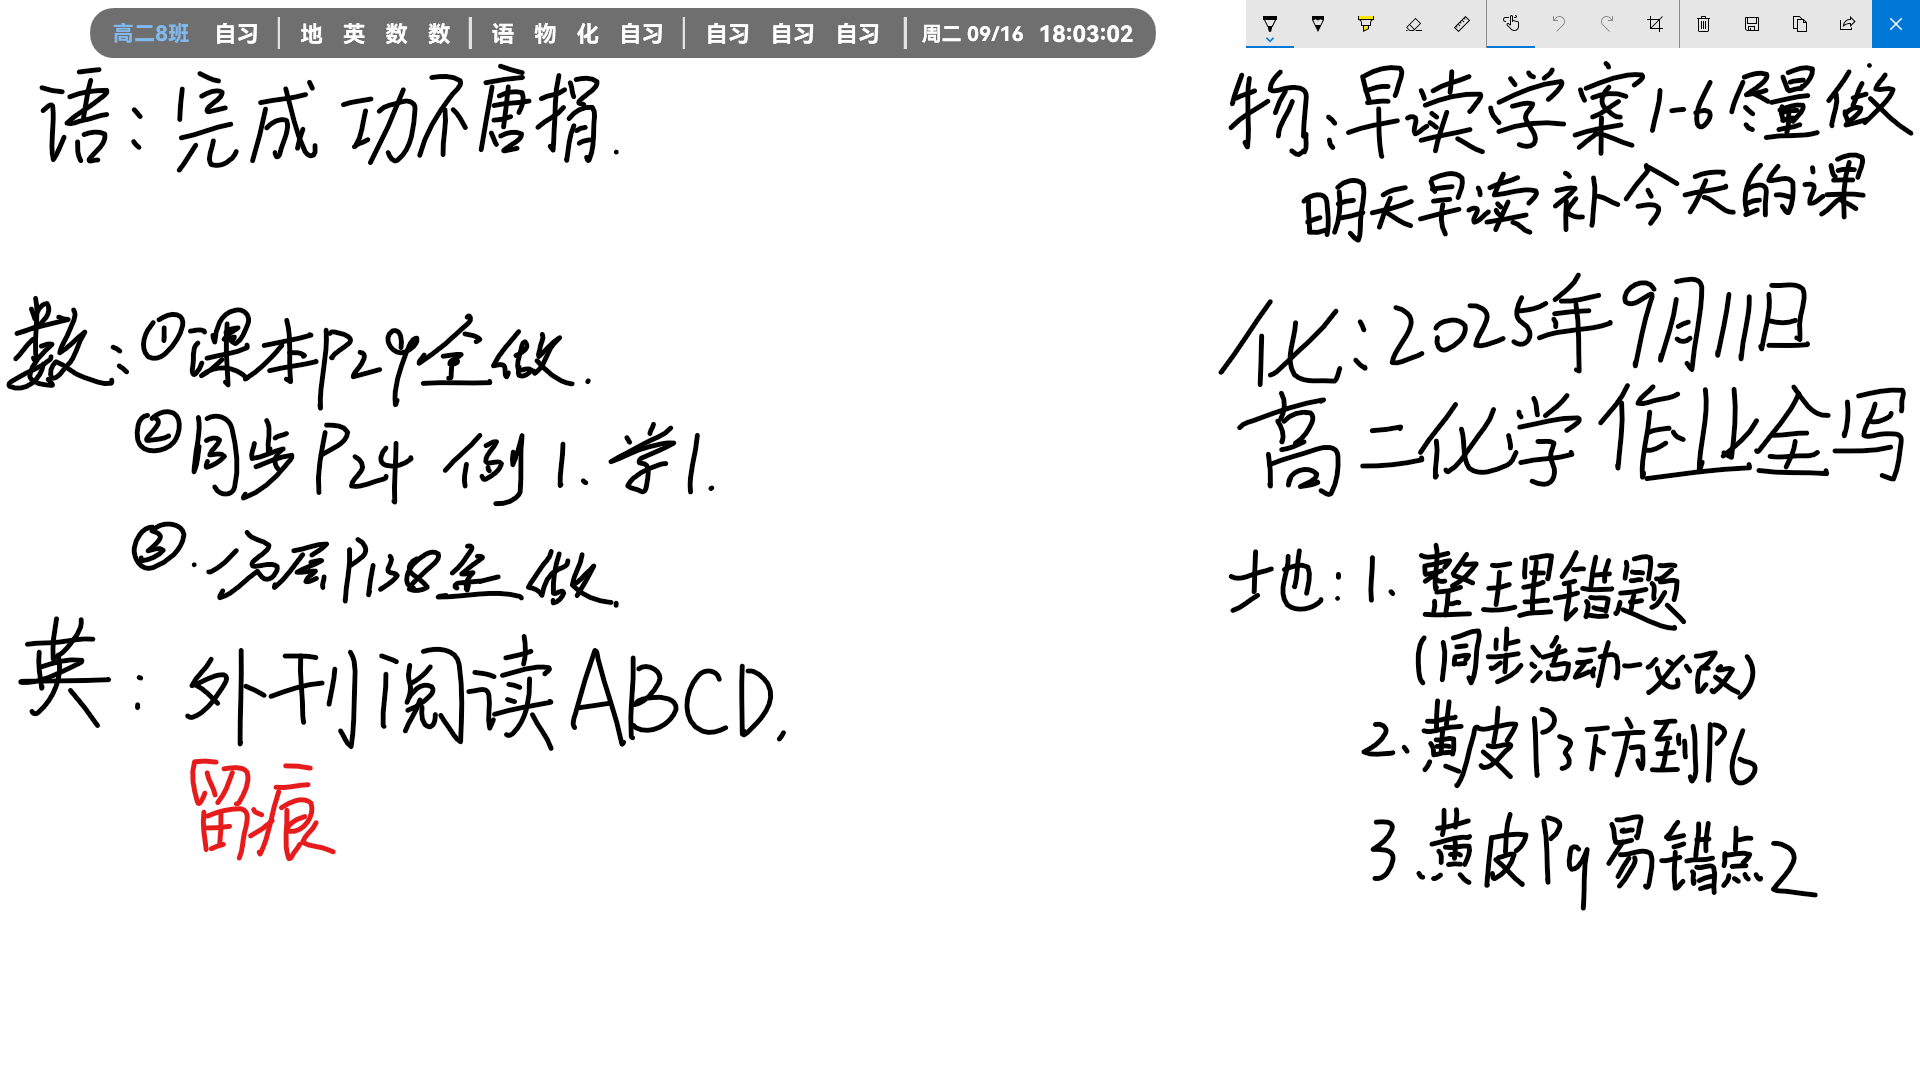 高二8班 自习 | 地 英 数 数 | 语 物 化 自习 | 自习 自习 自习 | 周二 09/16 18:03:02
语：完成功不唐捐.
数：①课本P29全做.
②同步P24 例1、学1.
③.分层P138全做.
英：外刊阅读ABCD.
留痕
物：早读学案1-6尽量做
明天早读补今天的课
化：2025年9月11日
高二化学作业全写
地：1.整理错题
(同步活动一必改)
2.黄皮P3下方到P6
3.黄皮P9易错点2